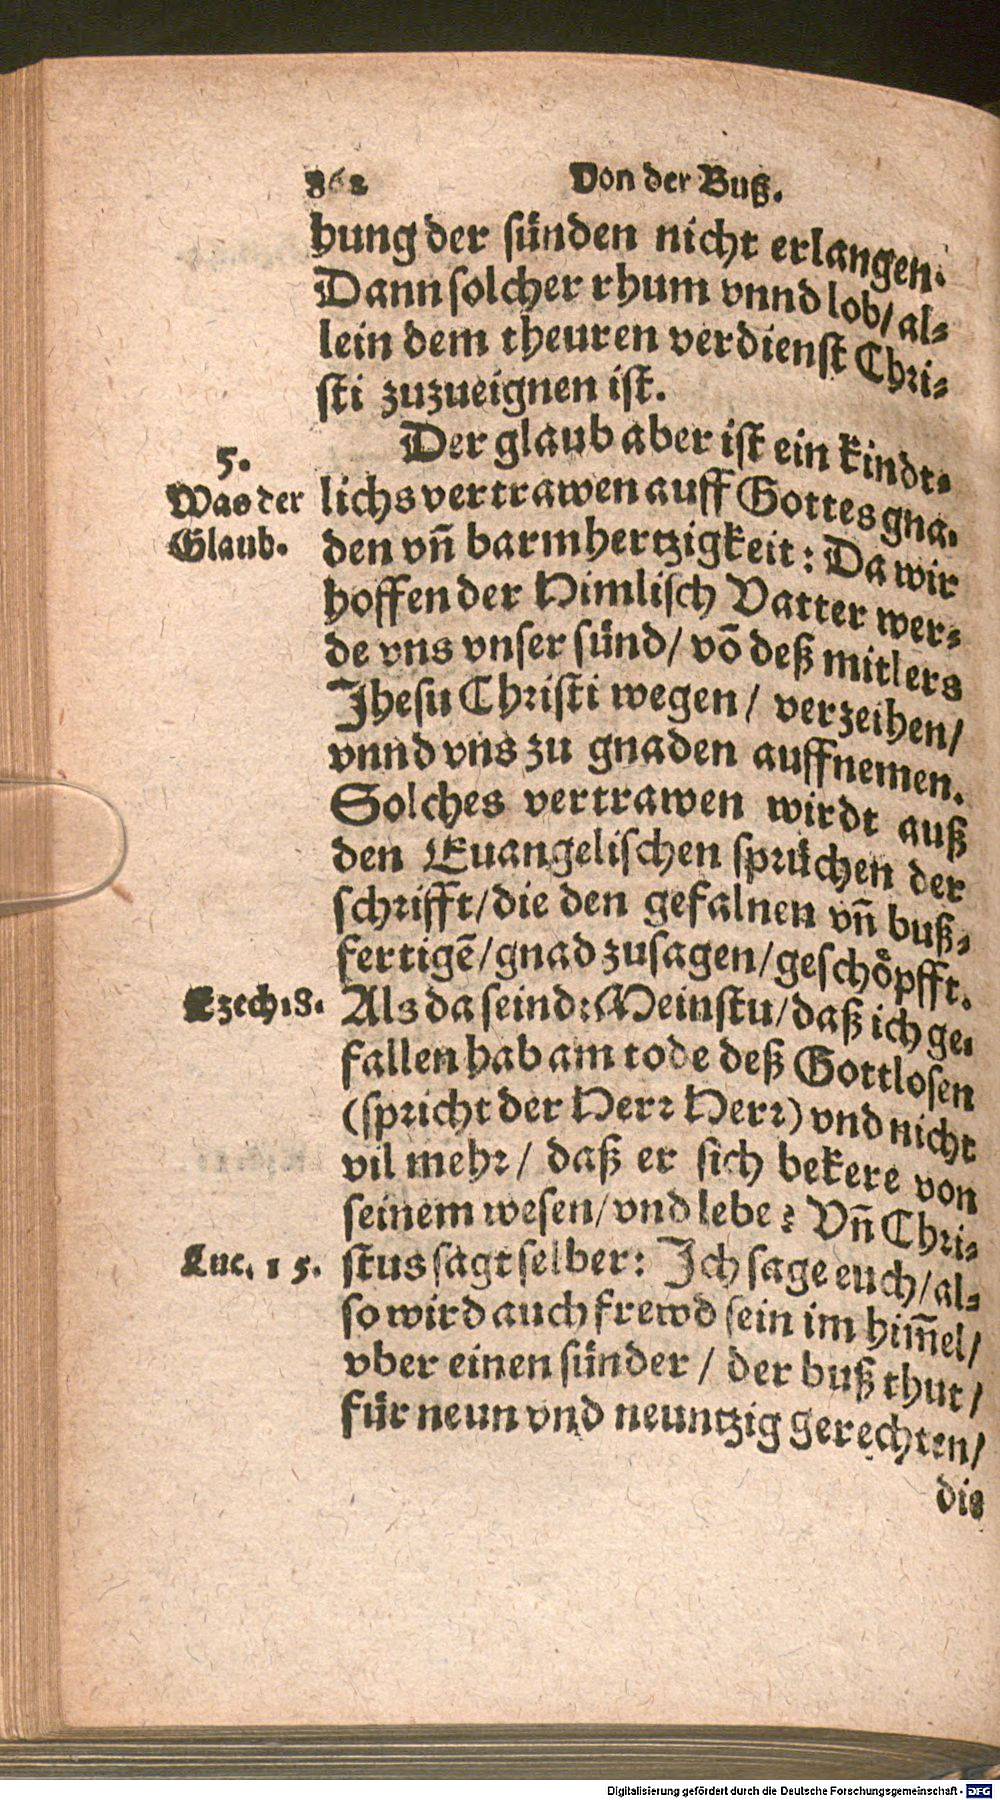 362 Von der Buß.
bung der sünden nicht erlangen.
Dann solcher rhum vnnd lob/ al⸗
lein dem theuren verdienst Chri⸗
sti zuzueignen ist.
Der glaub aber ist ein kindt⸗
5.
Was der
Glaub.
lichs vertrawen auff Gottes gna⸗
den vñ barmhertzigkeit: Da wir
hoffen der Himlisch Vatter wer⸗
de vns vnser sünd/ võ deß mitlers
Jhesu Christi wegen/ verzeihen/
vnnd vns zu gnaden auffnemen.
Solches vertrawen wirdt auß
den Euangelischen sprüchen der
schrifft/die den gefalnen vñ buß⸗
fertigẽ/gnad zusagen/geschöpfft.
Ezech 18.
Als da seind: Meinstu/daß ich ge⸗
fallen hab am tode deß Gottlosen
(spricht der Herr Herr) vnd nicht
vil mehr/ daß er sich bekere von
seinem wesen/vnd lebe? Vñ Chri⸗
Luc. 15.
stus sagt selber: Ich sage euch/al⸗
so wird auch frewd sein im him̃el/
vber einen sünder/ der buß thut/
für neun vnd neuntzig gerechten/
die
Digitalisierung gefördert durch die Deutsche Forschungsgemeinschaft - DFG